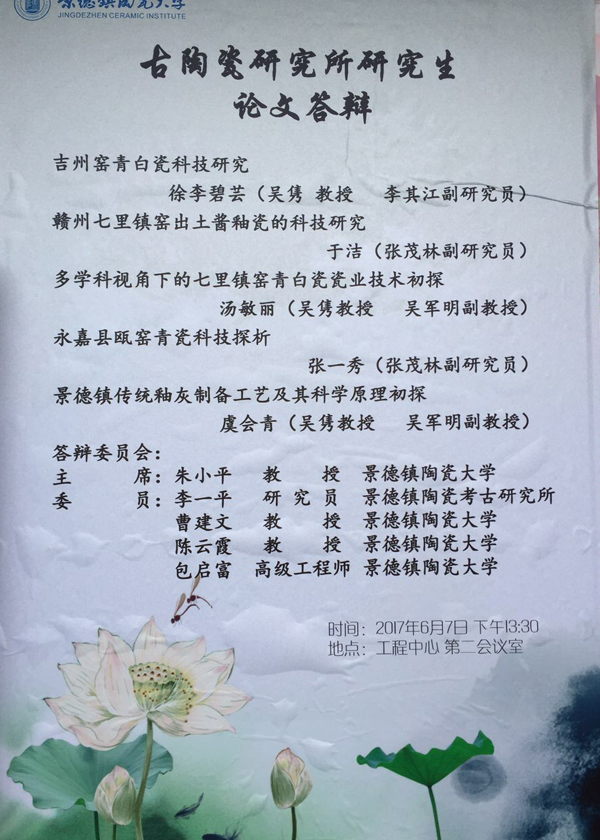 景德镇陶瓷大学
JINGDEZHEN CERAMIC INSTITUTE
古陶瓷研究所研究生
论文答辩
吉州窑青白瓷科技研究
徐李碧芸（吴隽 教授 李其江副研究员）
赣州七里镇窑出土酱釉瓷的科技研究
于洁（张茂林副研究员）
多学科视角下的七里镇窑青白瓷瓷业技术初探
汤敏丽（吴隽教授 吴军明副教授）
永嘉县瓯窑青瓷科技探析
张一秀（张茂林副研究员）
景德镇传统釉灰制备工艺及其科学原理初探
虞会青（吴隽教授 吴军明副教授）
答辩委员会：
主 席：朱小平 教 授 景德镇陶瓷大学
委 员：李一平 研 究 员 景德镇陶瓷考古研究所
曹建文 教 授 景德镇陶瓷大学
陈云霞 教 授 景德镇陶瓷大学
包启富 高级工程师 景德镇陶瓷大学
时间：2017年6月7日 下午13:30
地点：工程中心 第二会议室